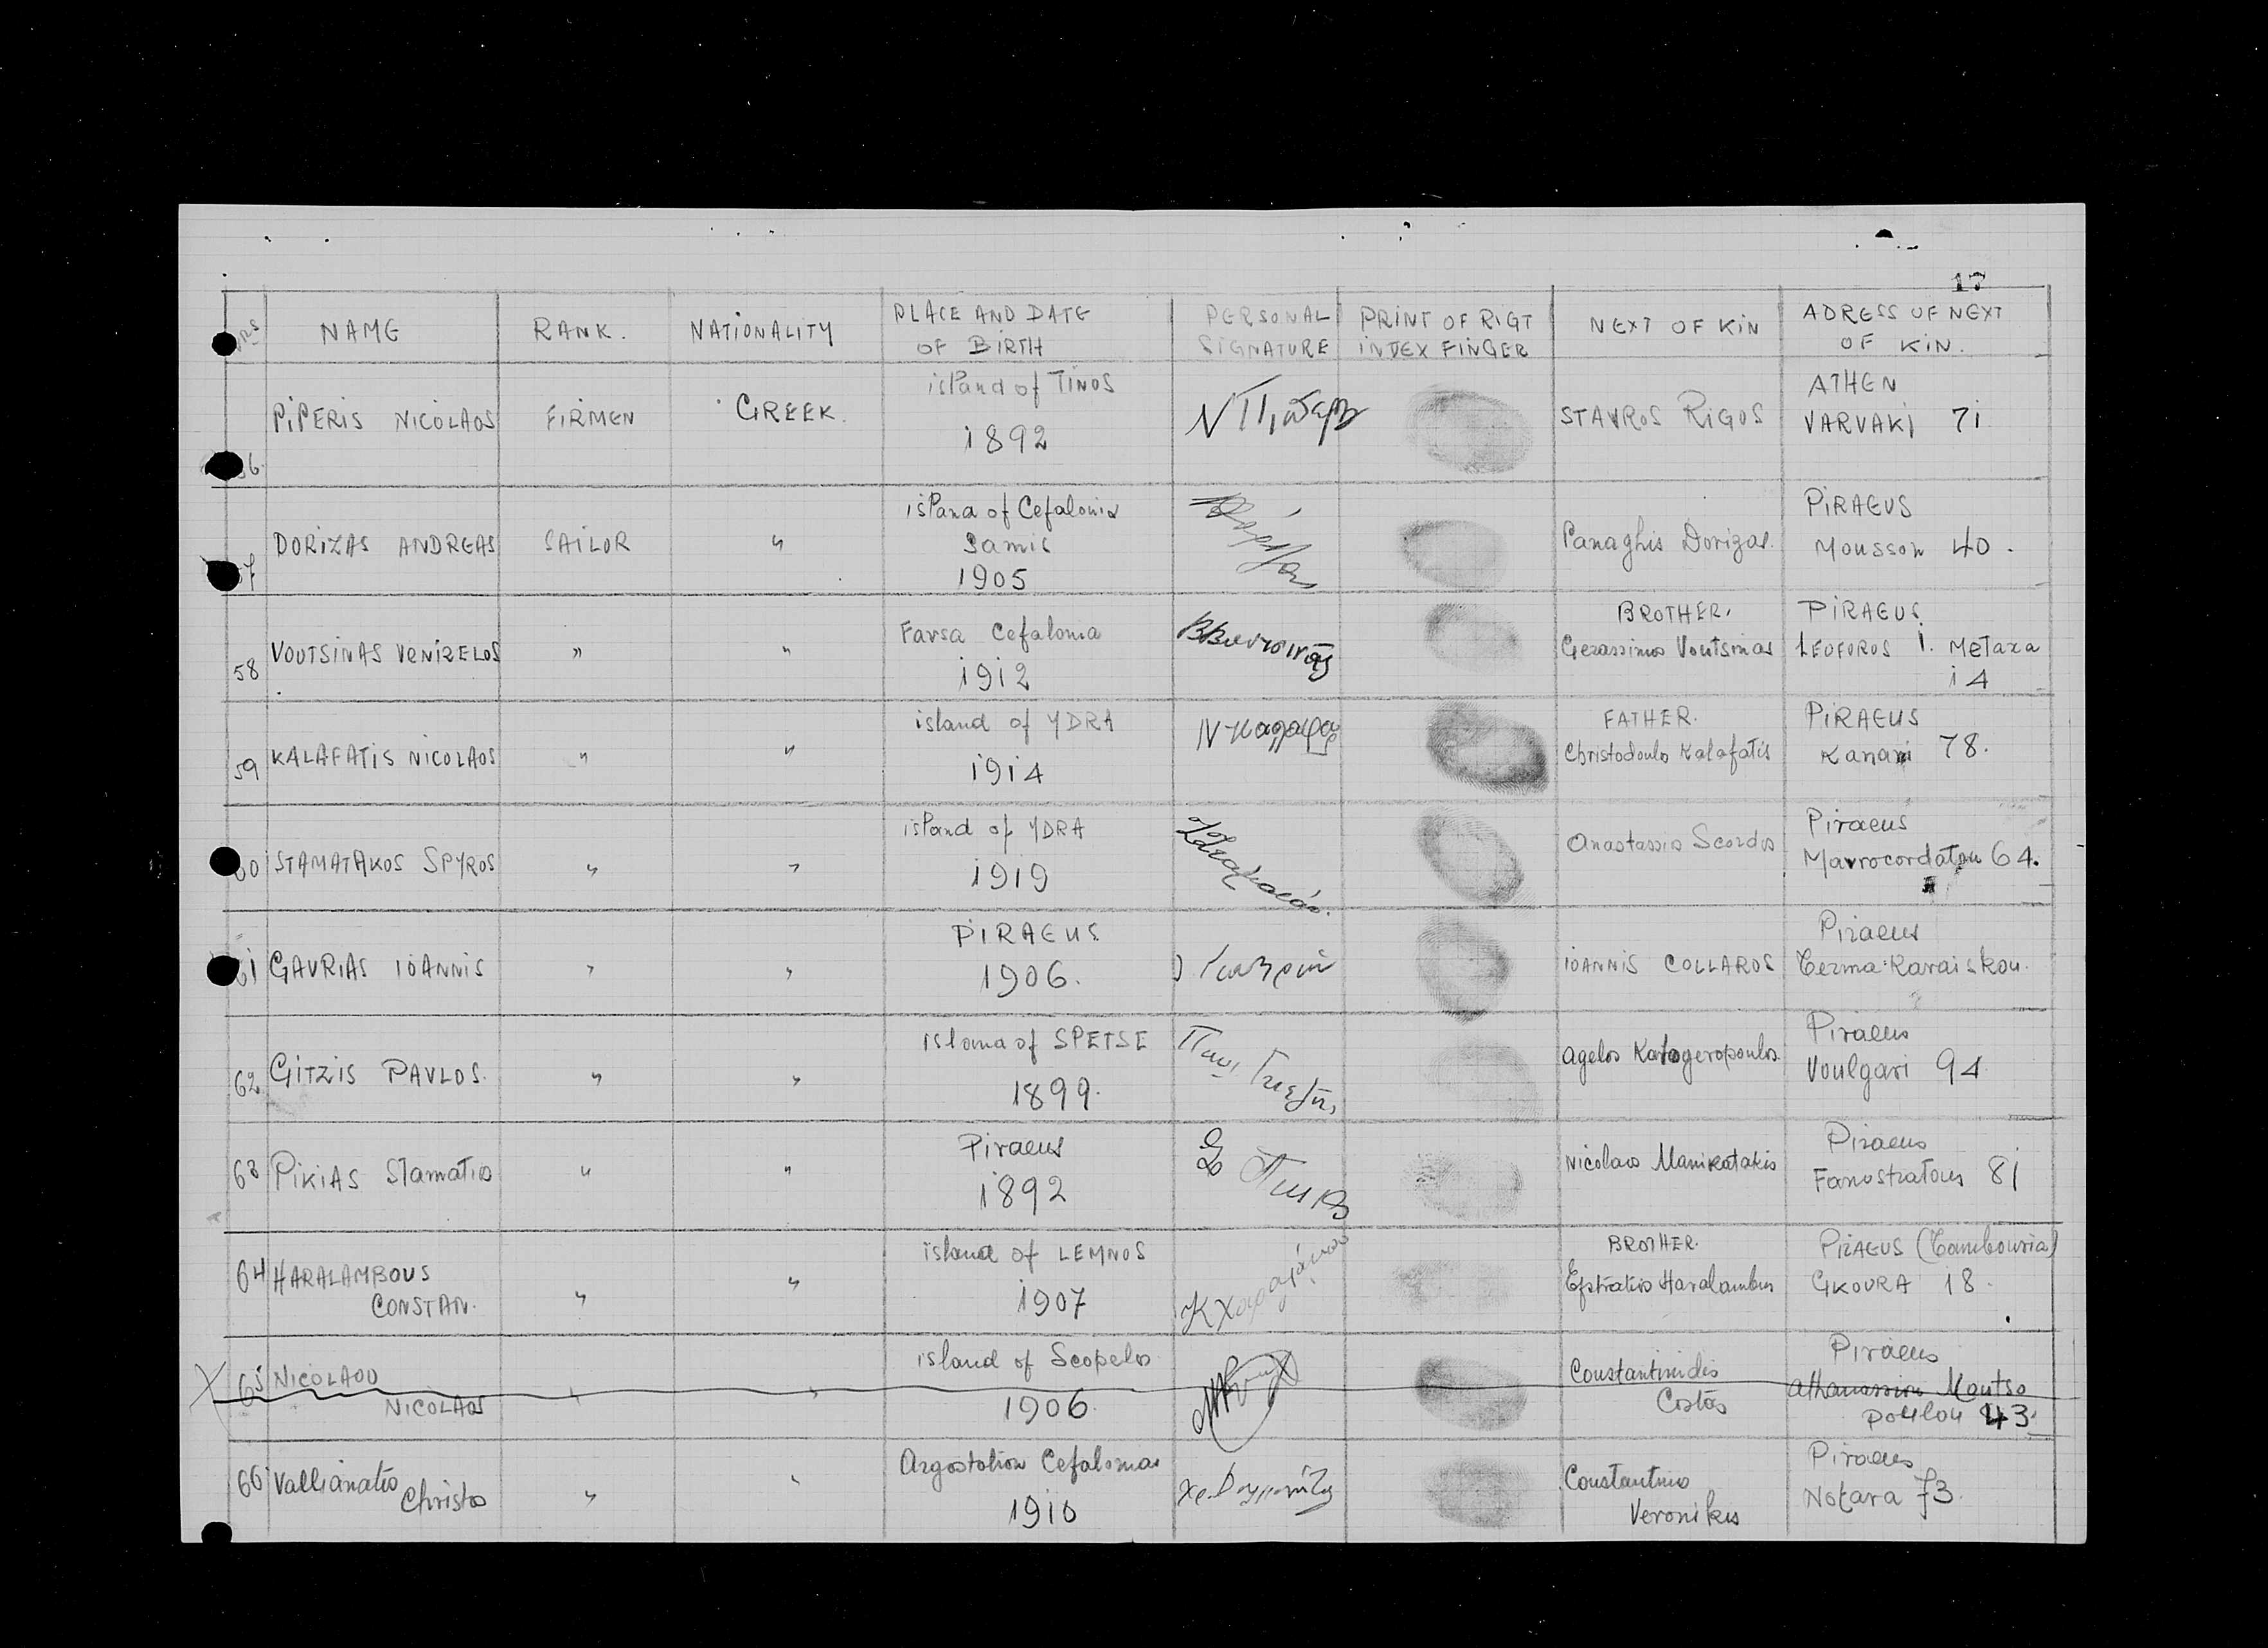 17
NRS NAME RANK. NATIONALITY PLACE AND DATE OF BIRTH PERSONAL SIGNATURE PRINT OF RIGT INDEX FINGER NEXT OF KIN ADRESS OF NEXT OF KIN.
56. PIPERIS NICOLAOS FIRMEN GREEK. island of TINOS 1892 STAVROS RIGOS ATHEN VARVAKI 71
57 DORIZAS ANDREAS SAILOR " island of Cefalonia Samis 1905 Panaghis Dorizas. PIRAEUS Mousson 40.
58 VOUTSINAS VENIZELOS " " Farsa Cefalonia 1912 ΒΒουτσινάς BROTHER. Gerassimos Voutsinas PIRAEUS. LEOFOROS I. Metaxa 14
59 KALAFATIS NICOLAOS " " island of YDRA 1914 FATHER. Christodoulos Kalafatis PIRAEUS Kanari 78.
60 STAMATAKOS SPYROS " " island of YDRA 1919 Anastassis Scordos Piraeus Mavrocordatou 64.
61 GAVRIAS IOANNIS " " PIRAEUS 1906. IOANNIS COLLAROS Piraeus Terma Karaiskou.
62 GITZIS PAVLOS. " " Island of SPETSE 1899. Agelos Kalogeropoulos Piraeus Voulgari 94
63 PIKIAS Stamatios " " Piraeus 1892 Nicolaos Manikatakis Piraeus Fanostratous 81
64 HARALAMBOUS CONSTAN. " " island of LEMNOS 1907 BROTHER. Efstratios Haralambus PIRAEUS (Tambouria) GKOURA 18.
X 65 NICOLAOU NICOLAOS " " island of Scopelos 1906. Constantinidis Costas Piraeus Athanassiou Moutsopoulou 43.
66 Vallianatos Christos " " Argostolion Cefalonias 1910 Constantinos Veronikis Piraeus Notara 73.